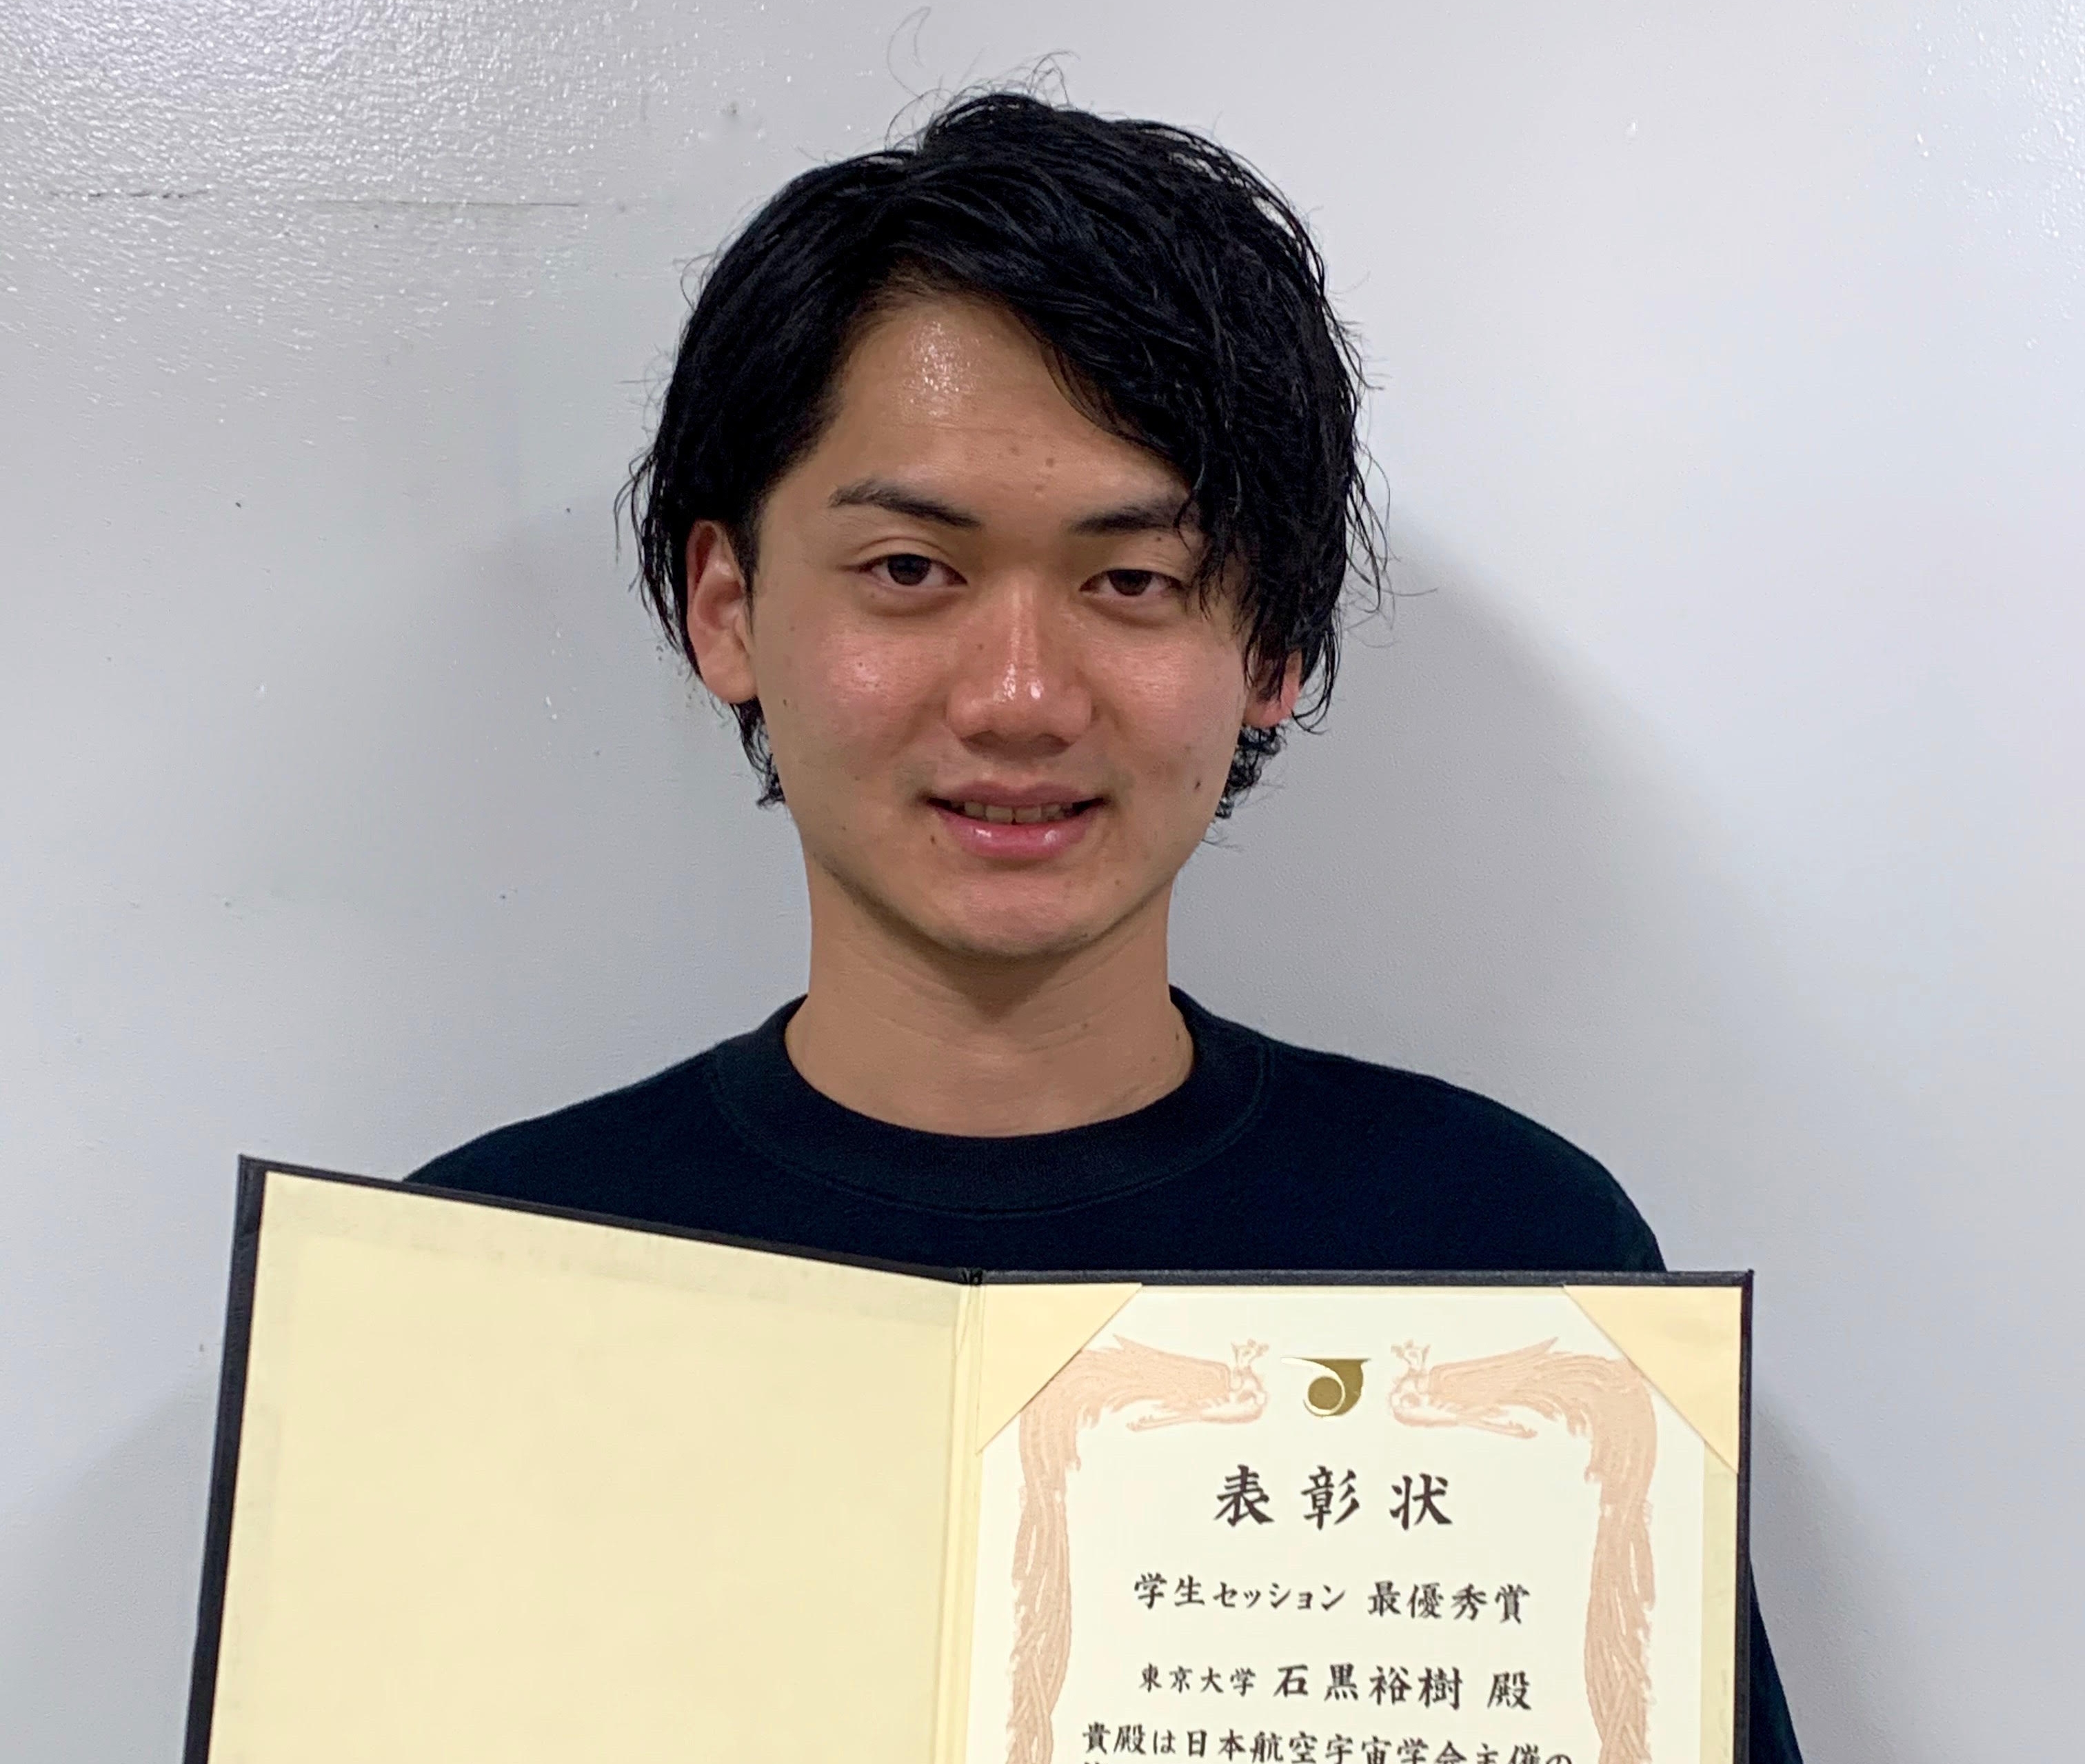 表彰状
学生セッション 最優秀賞
東京大学 石黒裕樹 殿
貴殿は日本航空宇宙学会主催の